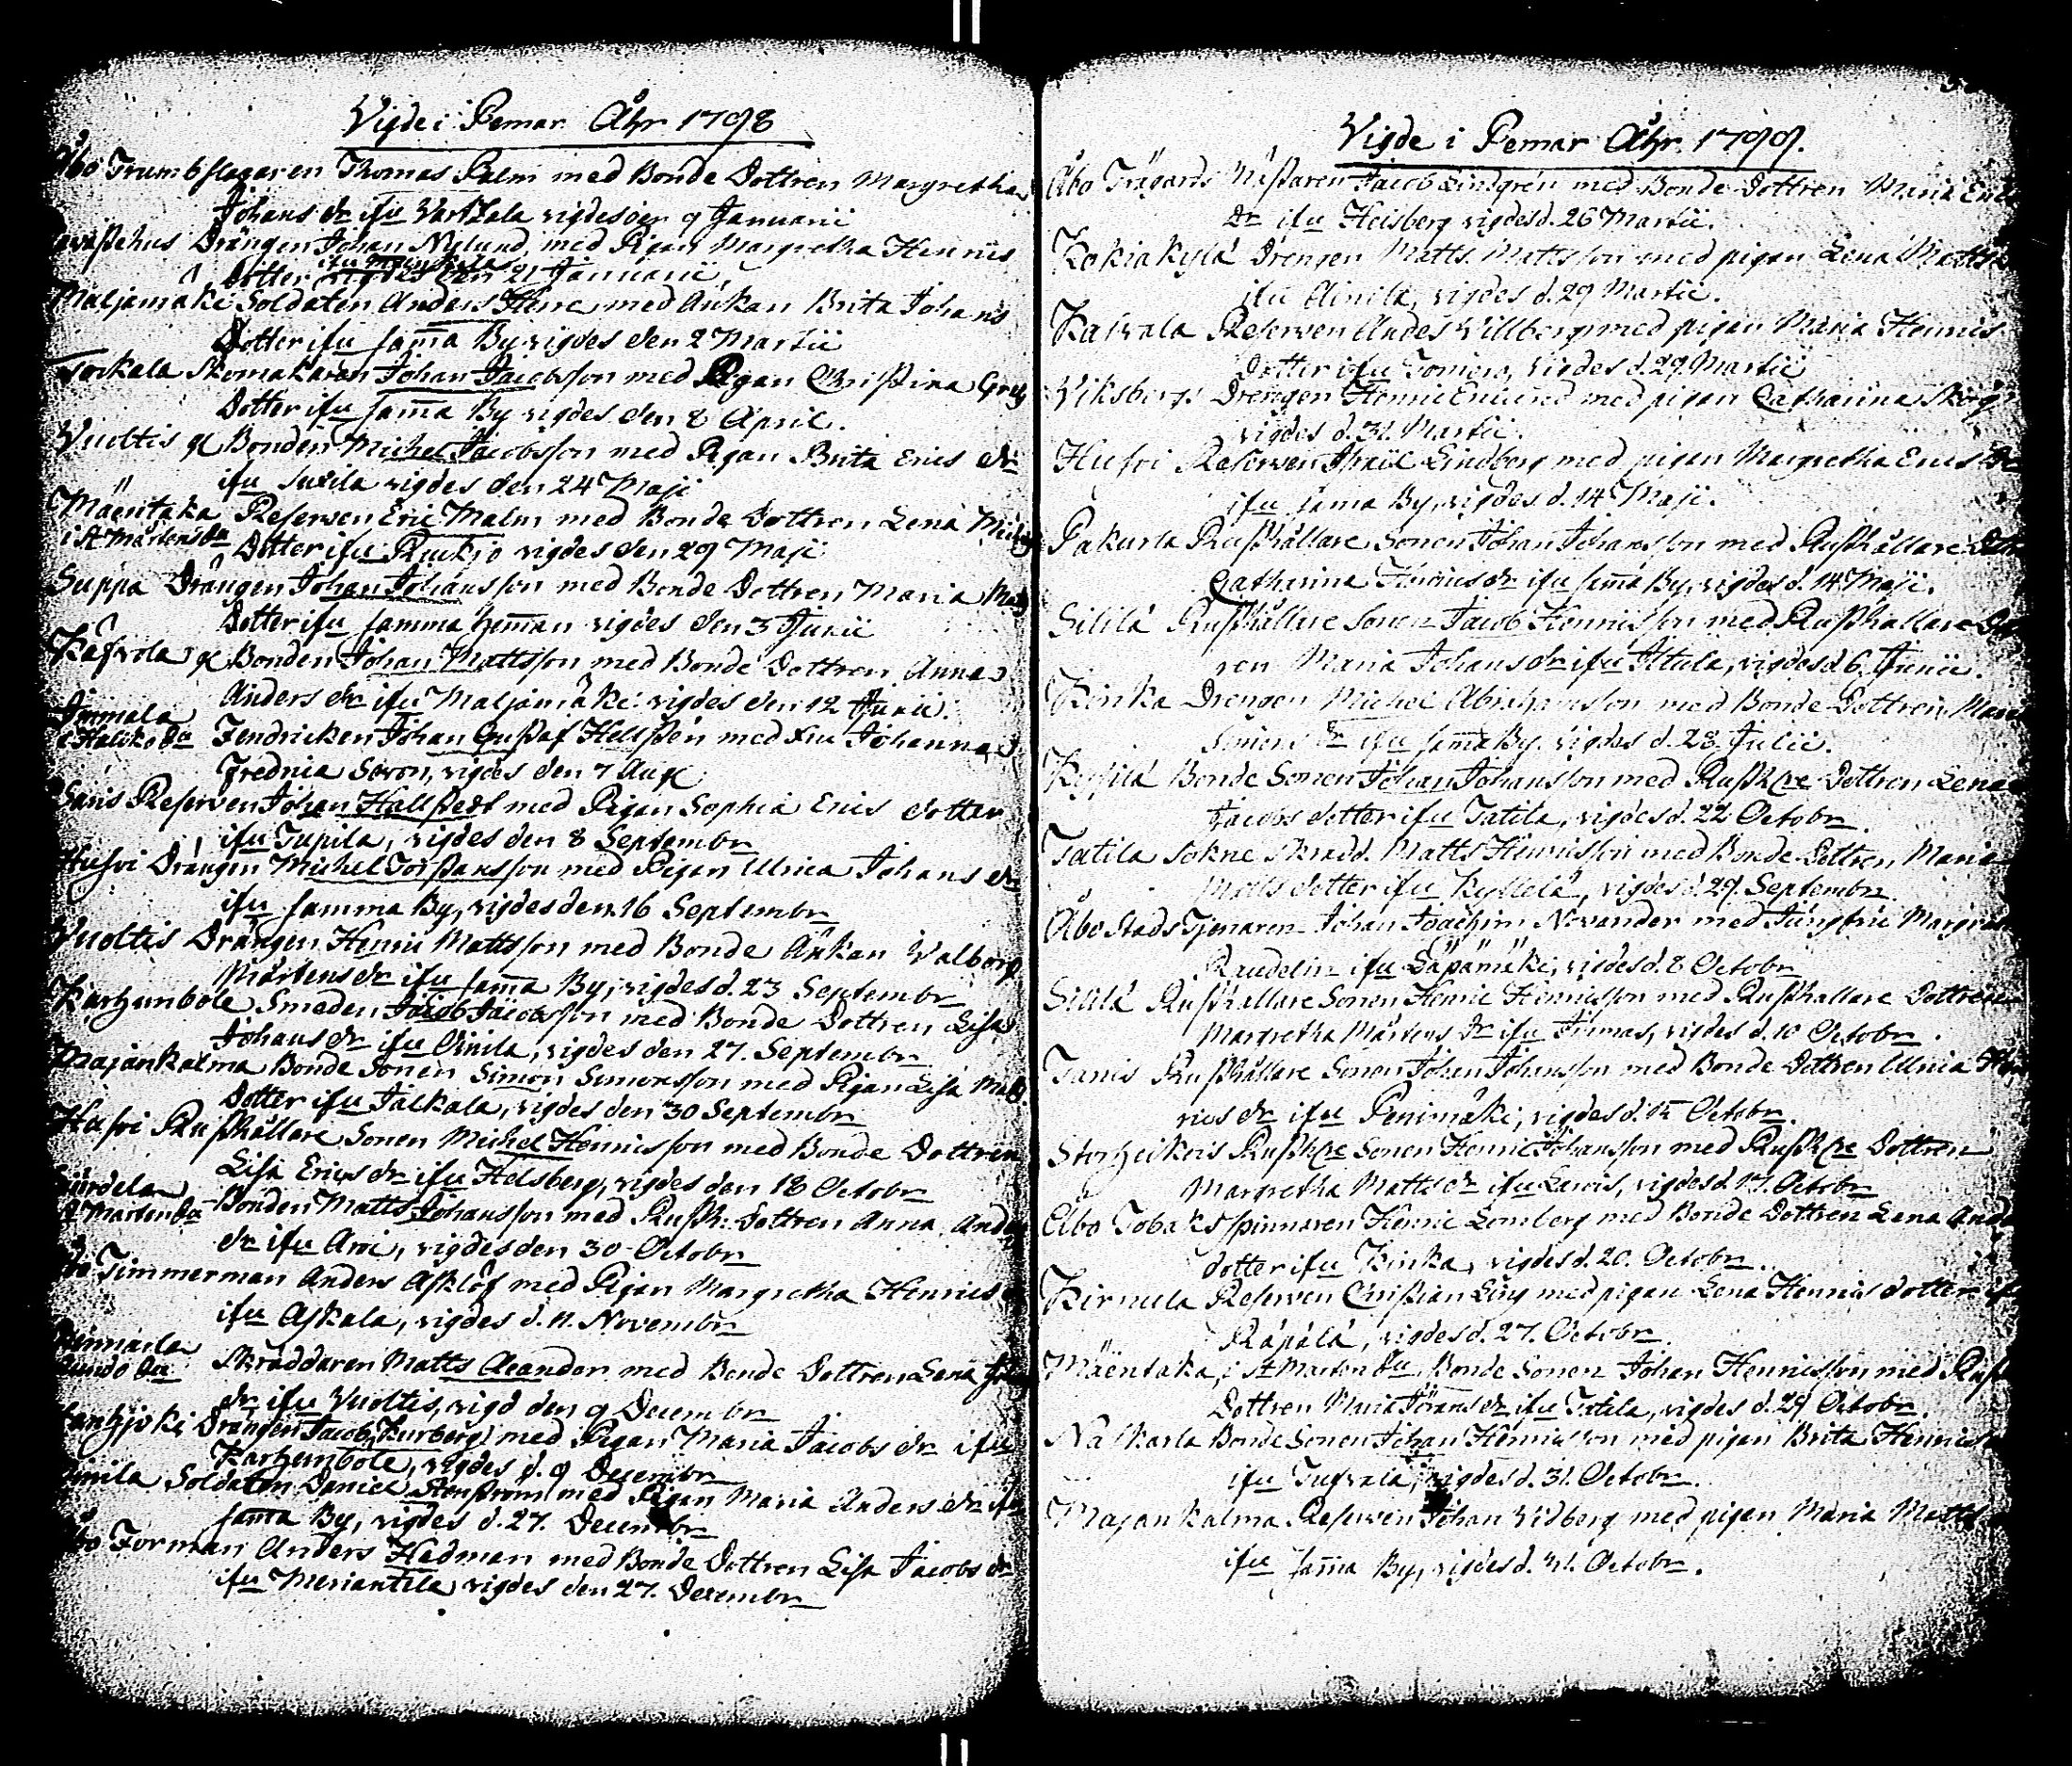 Vigde i Pemar Åhr 1798
Åbo Trumbslagaren Thomas Palm med Bonde Dottren Margretha
Johans dr ifu Vartsala vigdes den 9 Januarii
Drängen Johan Nylund med Pigan Margretha Henrics
Dotter vigdes den 21 Januarii
Maljamäki Soldaten Anders Herre med Änkan Brita Johans
Dotter ifu sama By vigdes den 2 Martii
Torkala Skomakaren Johan Jacobsson med Pigan Christina Greg
Dotter ifu sama By vigdes den 8 April.
Vuoltis gl Bonden Michel Jacobsson med Pigan Brita Erics dr
ifu Suxila vigdes den 24 Maji
Mäentaka Reserven Eric Malm med Bonde Dottren Lena
i St Mårtens Dotter ifu Ruckjo vigdes den 29 Maji
Suppa Drängen Johan Johansson med Bonde Dottren Maria
Dotter ifu samma heman vigdes den 3 Junii
Käfvola gl Bonden Johan Mattsson med Bonde Dottren Anna
Anders dr ifu Maljamäki vigdes den 12 Junii.
Immala
i Haliko Fendricken Johan Gustaf Hellsten med Fru Johanna
Fredrica vigdes den 7 Aug
Reserven Johan Hallstedt med Pigan Sophia Erics dotter
ifu Tupila, vigdes den 8 Septembr
Hufvi Drängen Michel Torstansson med Pigan Ulrica Johans dr
ifu samma By, vigdes den 16 Septembr
Vuoltis Drängen Henric Mattsson med Bonde Änkan Walborg
Mårtens dr ifu sama By, vigdes d. 23 Septembr
Karhunbole Smeden Jacob Jacobsson med Bonde Dottren Lisa
Johans dr ifu Oinila, vigdes den 27. Septembr
Majankalma Bonde Sonen Simon Simonsson med Pigan Lisa Matts
Dotter ifu Jalkala, vigdes den 30 Septembr
Hufvi Rusthållare Sonen Michel Henricsson med Bonde Dottren
Lisa Erics dr ifu Helsberg, vigdes den 18 Octobr
Bonden Matts Johansson med Rusth. Dottren Anna Anders
dr ifu Arvi, vigdes den 30 Octobr
Timmerman Anders Asklöf med Pigan Margretha Henrics
ifu Askala, vigdes d. 11. Novembr
Skräddaren Matts Aleander med Bonde Dottren Lena
dr ifu Vuoltis, vigd den 9 Decembr
Drängen Jacob Kurberg med Pigan Maria Jacobs dr ifu
Karhunbole, vigdes d. 9 Decembr
Soldaten Daniel Stenström med Pigan Maria Anders dr ifu
sama By, vigdes d. 27. Decembr
Forman Anders Hedman med Bonde Dottren Lisa Jacobs dr
ifu Meriantila vigdes den 27. Decembr
Vigde i Pemar Åhr 1799.
Åbo Trägårds Mästaren Jacob Lindgren med Bonde Dottren Maria Erics
dr ifu Helsberg vigdes d. 26 Martii.
Kokiakylä Drengen Matts Mattsson med pigan Lena Matts
ifu Oinila, vigdes d. 29 Martii.
Kalvala Reserven Andes Villberg med pigan Maria Henrics
Dotter ifu vigdes d. 29 Martii
Viksbergs Drengen Henric med pigan Catharina
vigdes d. 31. Martii.
Hufvi Reserven Israel Lindberg med pigan Margretha Erics dr
ifu sama By, vigdes d. 14 Maji.
Pakurla Rusthållare Sonen Johan Johansson med Rusthållare
Catharina Henrics dr ifu sama By, vigdes d. 14 Maji.
Sililä Rusthållare Sonen Jacob Henricsson med Rusthållare
ren Maria Johans dr ifu Ittala, vigdes d. 6. Junii.
Kinka Drengen Michel Abrahamsson med Bonde Dottren Maria
Simons dr ifu sama By. vigdes d. 28. Julii.
Bonde Sonen Johan Johansson med Rusthre Dottren Lena
Jacobs dotter ifu Tatila, vigdes d. 22 Octobr
Tatila Sokne Skradd. Matts Henricsson med Bonde Dottren Maria
Matts dotter ifu vigdes d. 29. Septembr
Åbo Stads Tjenaren Johan Joachim Novander med Jungfru Margreta
Raudelin ifu vigdes d. 8 Octobr
Sililä Rusthållare Sonen Henric Henricsson med Rusthållare Dottren
Margretha Mårtens dr ifu vigdes d. 10 Octobr.
Rusthållare Sonen Johan Johansson med Bonde Dottren Ulrica
rics dr ifu Penimäki, vigdes d. 15 Octobr.
Storheikeis Rusthre Sonen Henric Johansson med Rusthre Dottren
Margretha Matts dr ifu vigdes d. 17. Octobr
Åbo Tobaksspinnaren Henric Lomberg med Bonde Dottren Lena
dotter ifu Kinka, vigdes d. 20. Octobr.
Kirnula Reserven Christian med pigan Lena Henrics dotter
Räpälä, vigdes d. 27. Octobr
Mäentaka, i St Marten Bonde Sonen Johan Henricsson med
Dottren Maria Jörans dr ifu Tatila, vigdes d. 29 Octobr.
Naskarla Bonde Sonen Johan Henricsson med pigan Brita Henrics
ifu vigdes d. 31. Octobr.
Majankalma Reserven Johan Vidberg med pigan Maria Matts
ifu sama By, vigdes d. 31. Octobr.